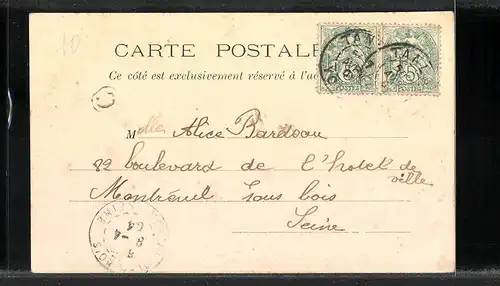 10
CARTE POSTALE
Ce côté est exclusivement réservé à l'ad
Melle Alice Bardeau
82 boulevard de l'hotel de
ville
Montreuil sous bois
Seine